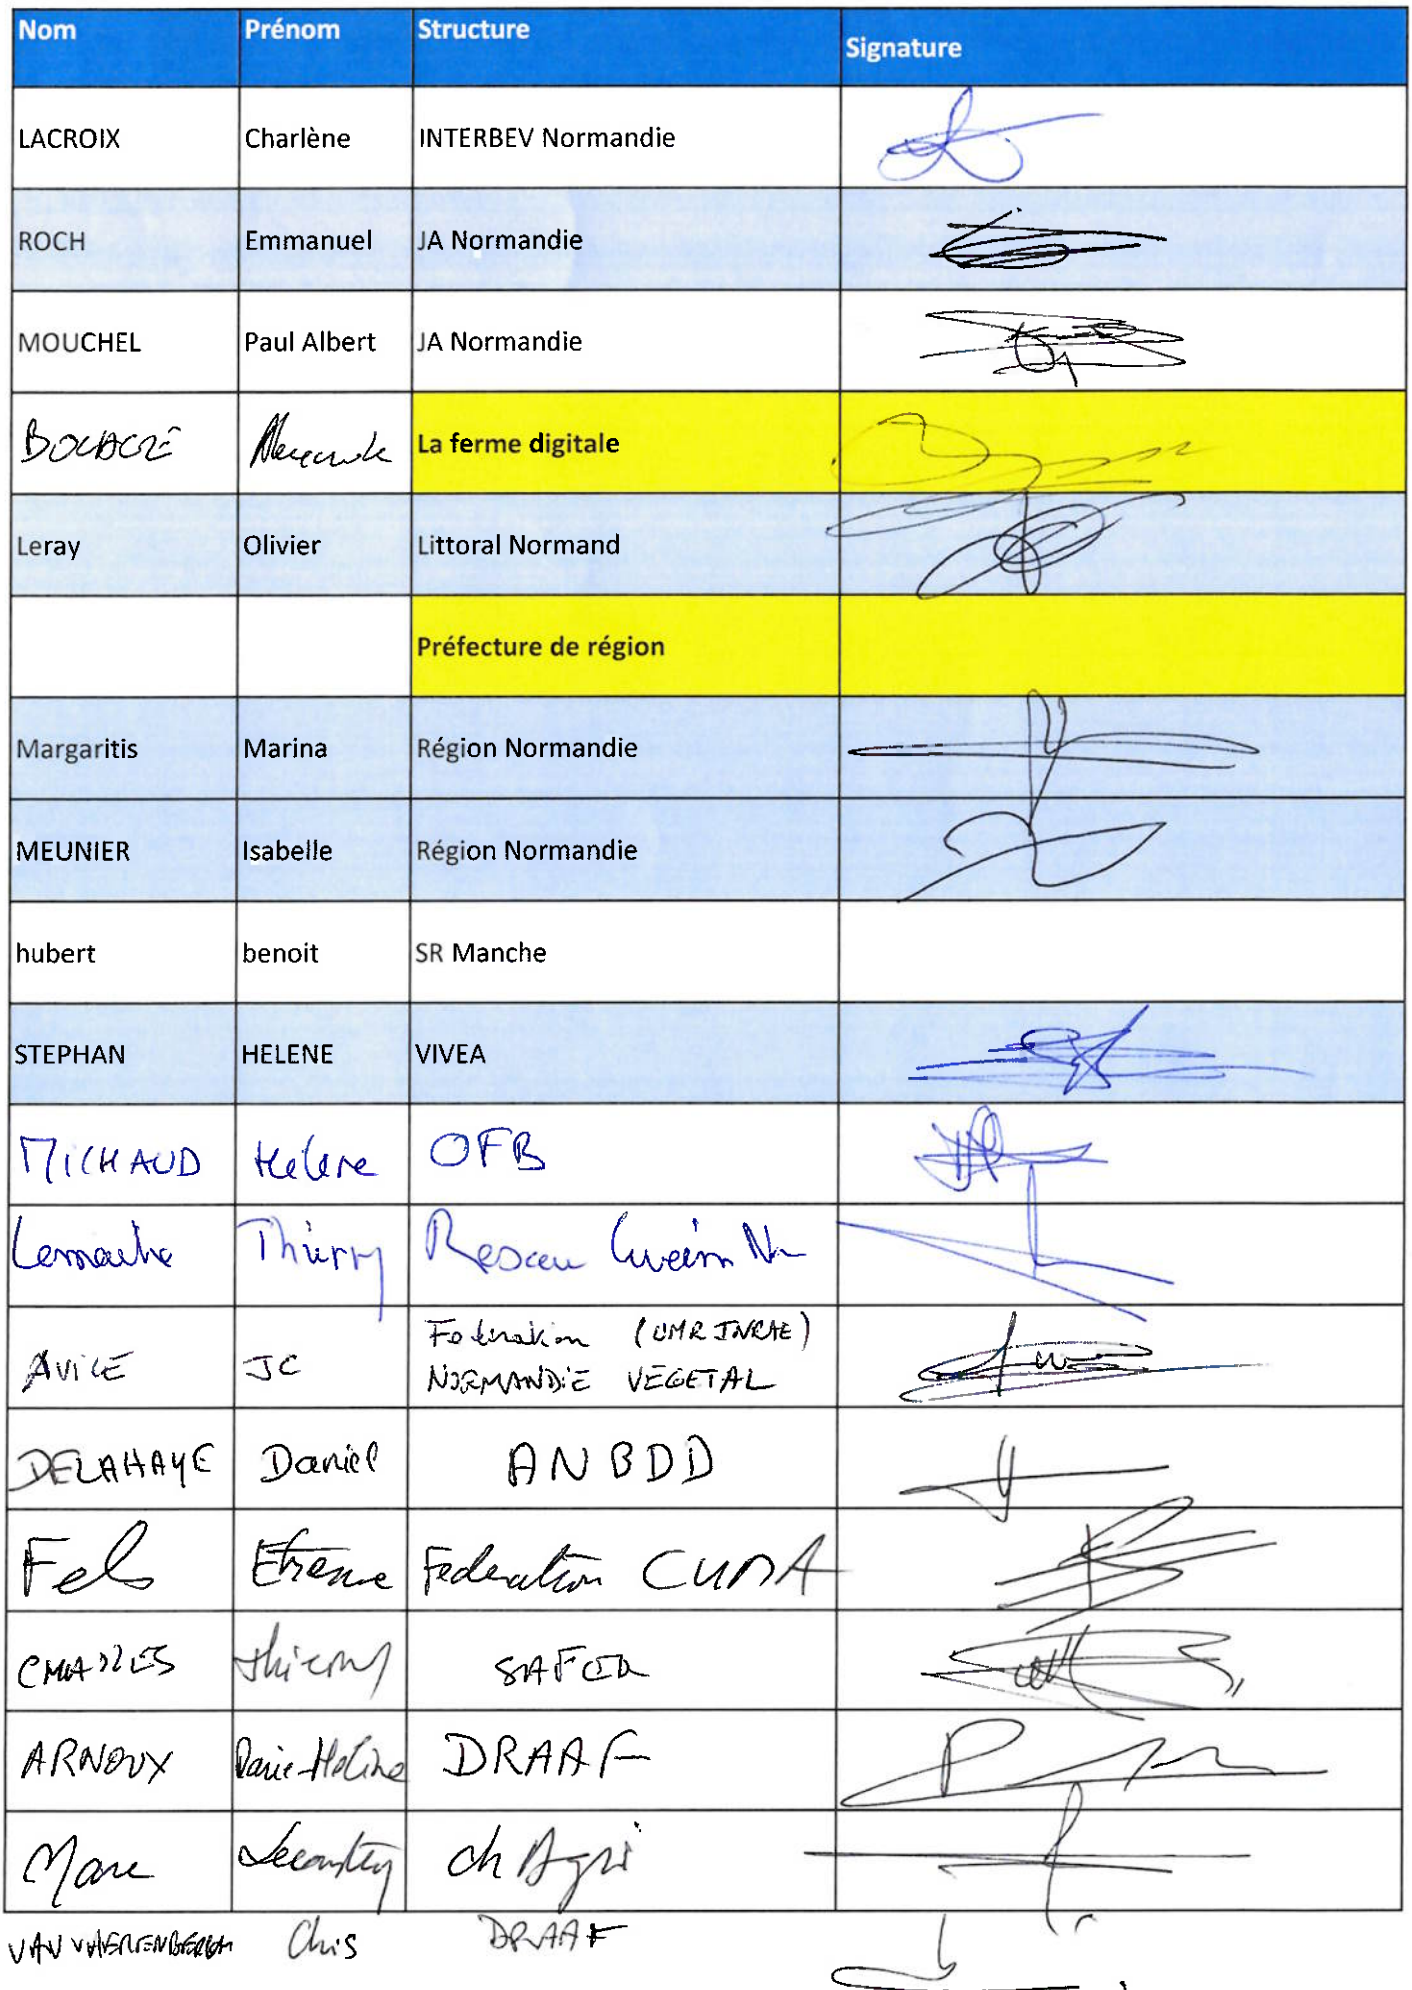 Nom Prénom Structure Signature
LACROIX Charlène INTERBEV Normandie
ROCH Emmanuel JA Normandie
MOUCHEL Paul Albert JA Normandie
La ferme digitale
Leray Olivier Littoral Normand
Préfecture de région
Margaritis Marina Région Normandie
MEUNIER Isabelle Région Normandie
hubert benoit SR Manche
STEPHAN HELENE VIVEA
MICHAUD Helene OFB
Thierry Reseau
(UMR INRAE)
JC NORMANDIE VEGETAL
DELAHAYE Daniel ANBDD
Fels Etienne Federation CUMA
CHARLES Thierry SAFER
ARNOUX Marie-Hélène DRAAF
Marc ch Agri
Chris DRAAF